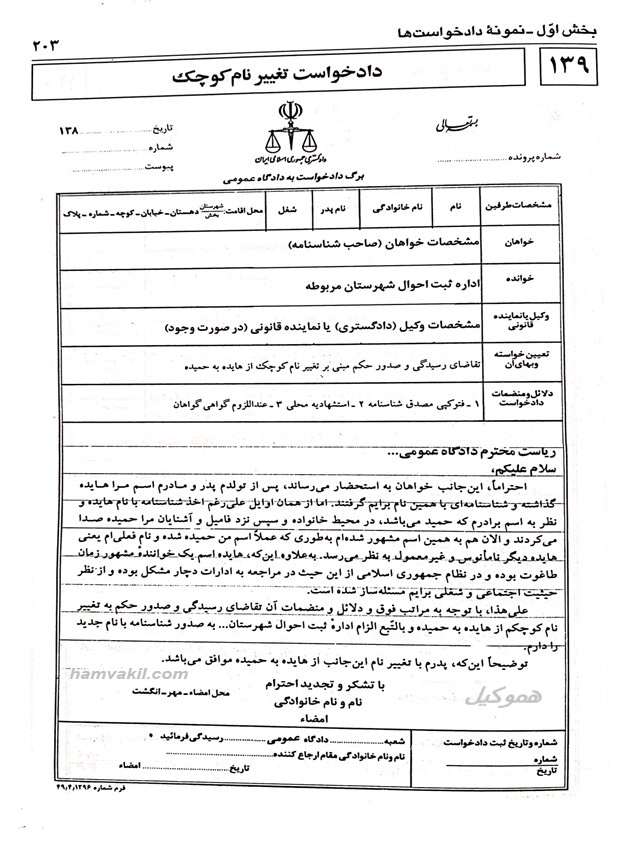 بخش اوّل ـ نمونهٔ دادخواست‌ها
۲۰۳
۱۳۹
دادخواست تغییر نام کوچک
بسمه‌تعالی
دادگستری جمهوری اسلامی ایران
تاریخ .................... ۱۳۸
شماره ....................
پیوست ....................
شماره پرونده ....................
برگ دادخواست به دادگاه عمومی
مشخصات طرفین
نام
نام خانوادگی
نام پدر
شغل
محل اقامت: شهرستان بخش دهستان ـ خیابان ـ کوچه ـ شماره ـ پلاک
خواهان
مشخصات خواهان (صاحب شناسنامه)
خوانده
اداره ثبت احوال شهرستان مربوطه
وکیل یا نماینده
قانونی
مشخصات وکیل (دادگستری) یا نماینده قانونی (در صورت وجود)
تعیین خواسته
وبهای آن
تقاضای رسیدگی و صدور حکم مبنی بر تغییر نام کوچک از هایده به حمیده
دلائل و منضمات
دادخواست
۱ ـ فتوکپی مصدق شناسنامه ۲ ـ استشهادیه محلی ۳ ـ عنداللزوم گواهی گواهان
ریاست محترم دادگاه عمومی...
سلام علیکم،
احتراماً، این‌جانب خواهان به استحضار می‌رساند، پس از تولدم پدر و مادرم اسم مرا هایده
گذاشته و شناسنامه‌ای با همین نام برایم گرفتند. اما از همان اوایل علی‌رغم اخذ شناسنامه با نام هایده و
نظر به اسم برادرم که حمید می‌باشد، در محیط خانواده و سپس نزد فامیل و آشنایان مرا حمیده صدا
می‌کردند و الان هم به همین اسم مشهور شده‌ام به‌طوری که عملاً اسم من حمیده شده و نام فعلی‌ام یعنی
هایده دیگر نامأنوس و غیرمعمول به نظر می‌رسد. به‌علاوه این‌که، هایده اسم یک خوانندهٔ مشهور زمان
طاغوت بوده و در نظام جمهوری اسلامی از این حیث در مراجعه به ادارات دچار مشکل بوده و از نظر
حیثیت اجتماعی و شغلی برایم مسئله‌ساز شده است.
علی‌هذا، با توجه به مراتب فوق و دلائل و منضمات آن تقاضای رسیدگی و صدور حکم به تغییر
نام کوچکم از هایده به حمیده و بالتّبع الزام ادارهٔ ثبت احوال شهرستان... به صدور شناسنامه با نام جدید
را دارم.
توضیحاً این‌که، پدرم با تغییر نام این‌جانب از هایده به حمیده موافق می‌باشد.
hamvakil.com
هموکیل
با تشکر و تجدید احترام
نام و نام خانوادگی
امضاء
محل امضاء ـ مهر ـ انگشت
شماره و تاریخ ثبت دادخواست
شماره
تاریخ
شعبه .................... دادگاه عمومی .................... رسیدگی فرمائید
نام و نام خانوادگی مقام ارجاع کننده ....................
تاریخ .................... امضاء
فرم شماره ۴۹٫۴٫۱۲۹۶